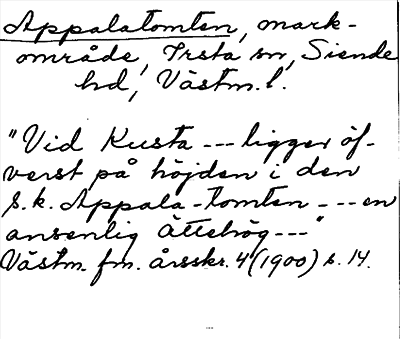 Appalatomten, mark-
område, Irsta sn, Siende
hd, Västm. l.
"Vid Kusta --- ligger öf-
verst på höjden i den
s.k. Appala-tomten --- en
ansenlig Ättehög ---"
Västm. fm. årsskr. 4 (1900) s. 14.